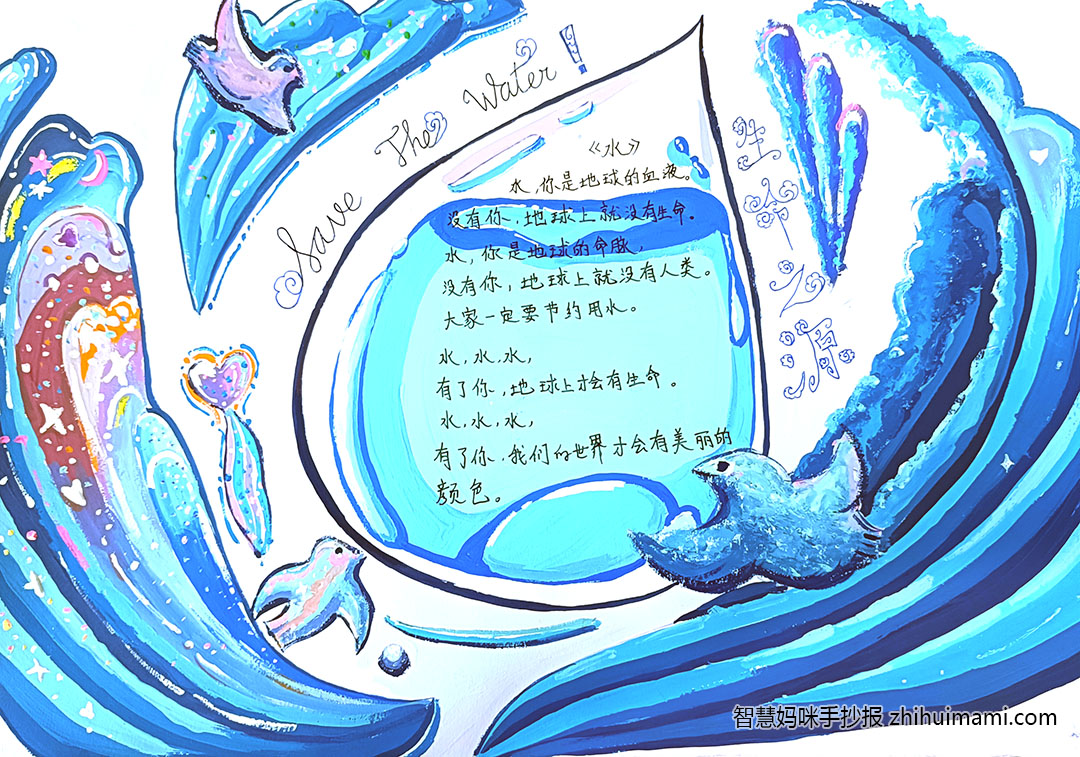 Save The Water!
生命之源
《水》
水,你是地球的血液。
没有你,地球上就没有生命。
水,你是地球的命脉,
没有你,地球上就没有人类。
大家一定要节约用水。
水,水,水,
有了你,地球上才会有生命。
水,水,水,
有了你,我们的世界才会有美丽的
颜色。
智慧妈咪手抄报 zhihuimami.com